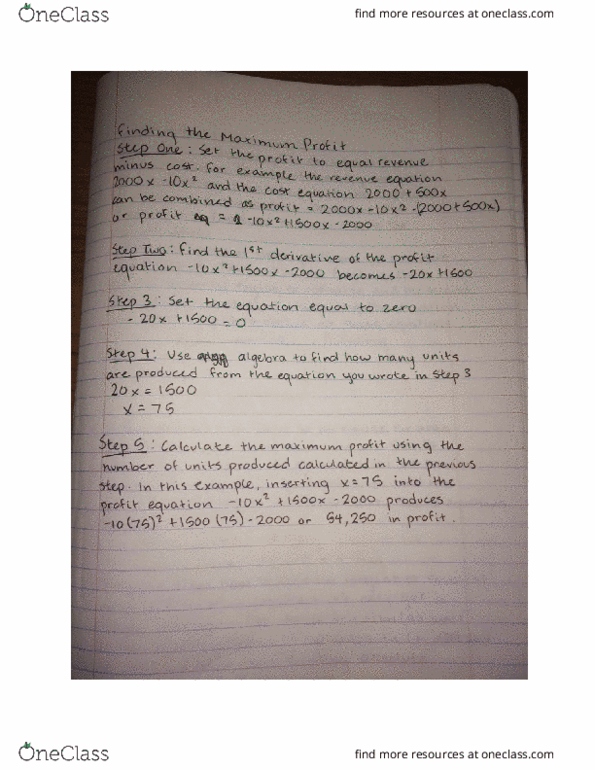 OneClass
find more resources at oneclass.com
Finding the Maximum Profit
Step One: Set the profit to equal revenue
minus cost. for example the revenue equation
2000x -10x² and the cost equation 2000 + 500x
can be combined as profit = 2000x -10x² -(2000+500x)
or profit = -10x²+1500x -2000
Step Two: Find the 1st derivative of the profit
equation -10x²+1500x -2000 becomes -20x+1500
Step 3: Set the equation equal to zero
- 20x +1500 = 0
Step 4: Use algebra to find how many units
are produced from the equation you wrote in Step 3
20x = 1500
x = 75
Step 5: Calculate the maximum profit using the
number of units produced calculated in the previous
step. In this example, inserting x=75 into the
profit equation -10x² +1500x -2000 produces
-10(75)² +1500 (75) -2000 or 54,250 in profit.
OneClass
find more resources at oneclass.com